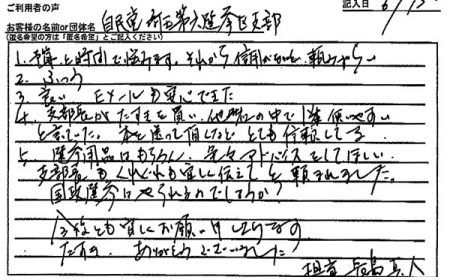 ご利用者の声
記入日 6/13
お客様の名前or団体名 自民党埼玉第六選挙区支部
(匿名希望の方は「匿名希望」とご記入ください)
1. 予算と時間で悩みます。それから信用がないと頼みづらい
2. ふつう
3. 良い Eメールも安心できた
4. 支部長がたすきを買い、他社の中で1番使いやすい
と言っていた。本を送って頂いたなど とても信頼してる
5. 選挙用品はもちろん、色々アドバイスをしてほしい
支部長もくれぐれも宜しく伝えてと頼まれました。
国政選挙はやられるのでしょうか?
今後とも宜しくお願い申し上げます
たすき、ありがとうございました
担当